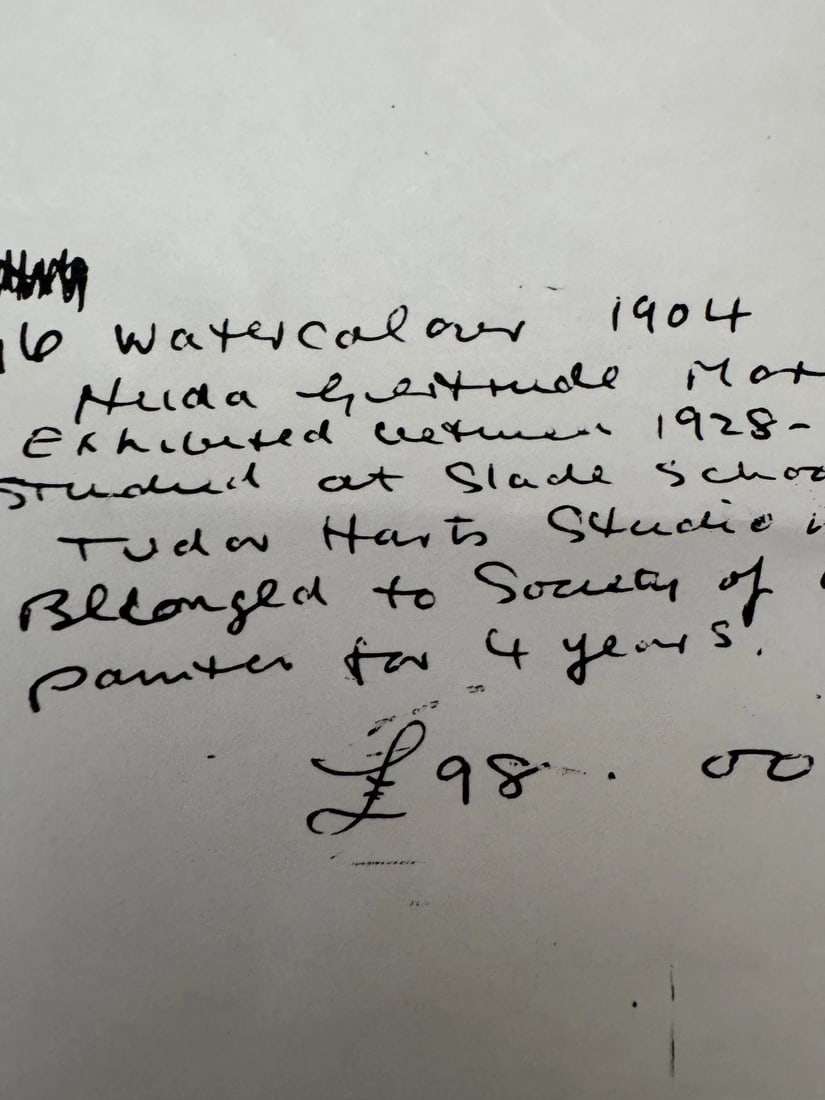 16 Watercolour 1904
Hilda Gertrude
Exhibited between 1928-
Studied at Slade Schoo
Tudor Harts Studio
Belonged to Society of
painter for 4 years.
£98.00